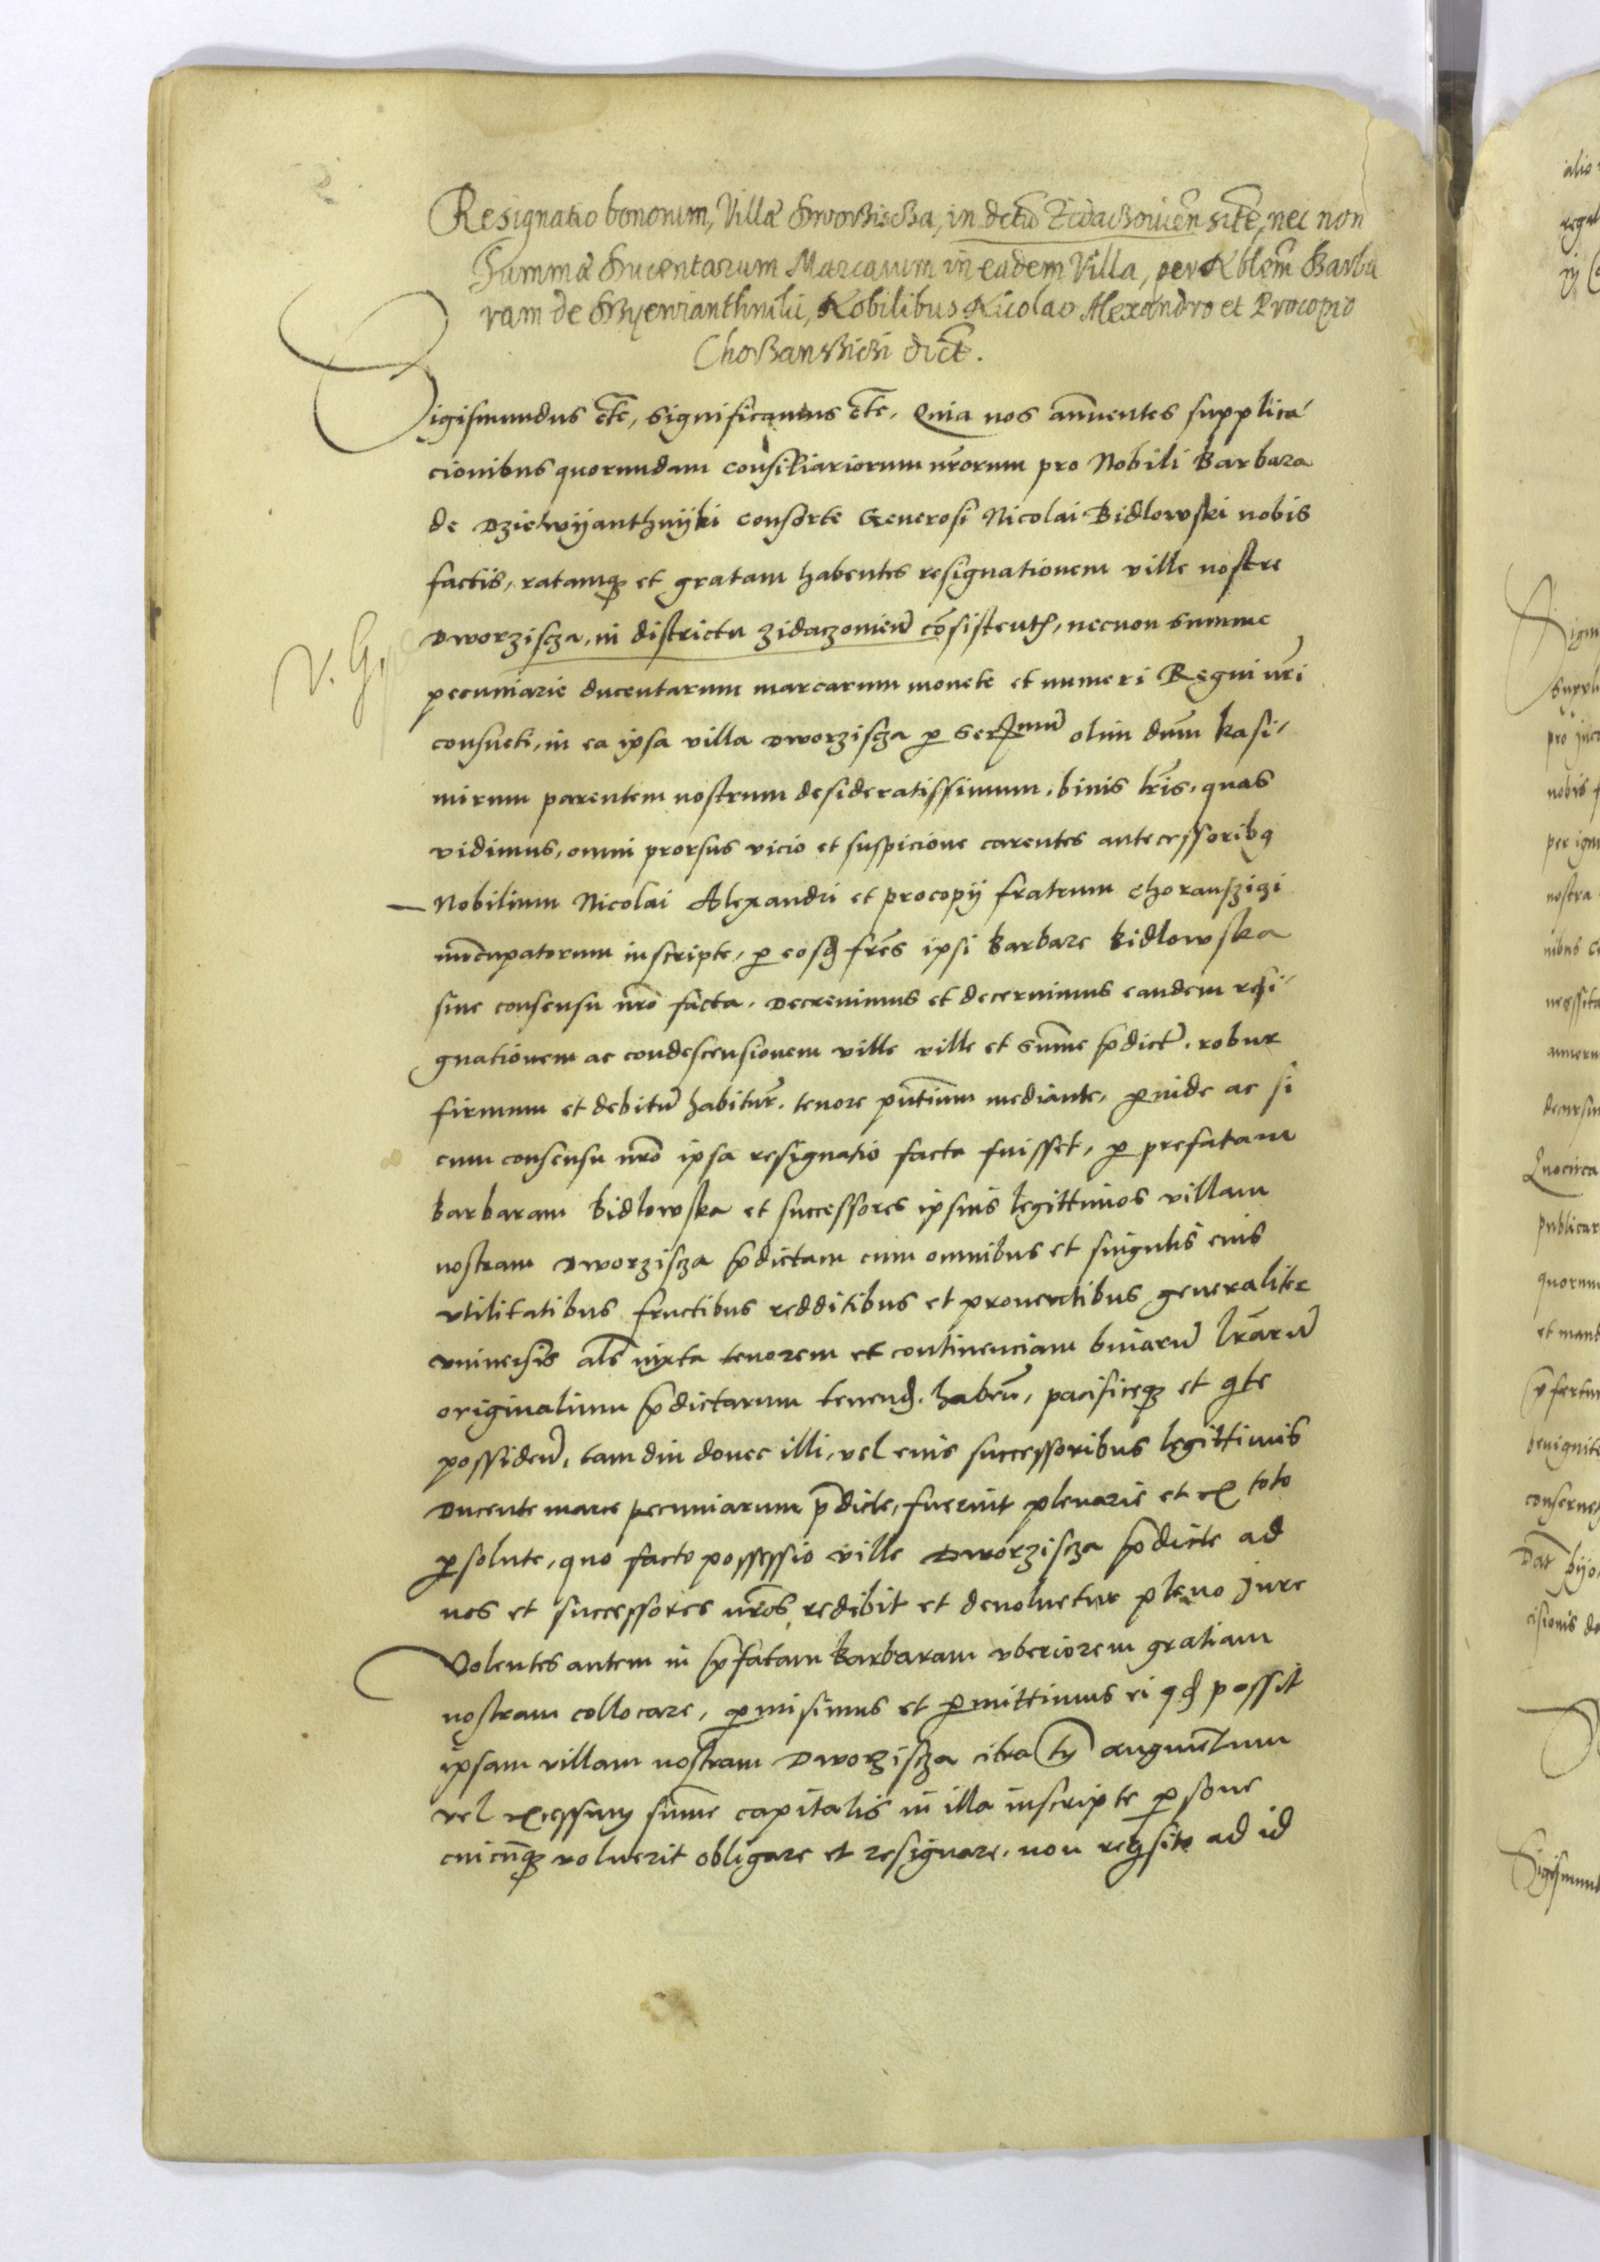 Resignatio bonorum, Villæ Dworziscza, in dctũ Zidaczouien̄ sitæ, nec non
Summæ Ducentarum Marcarum in eadem Villa, per Nblem̃ Barba
ram de Dzyewianthniki, Nobilibus Nicolao Alexandro et Procopio
Choranszici dict̃.
Sigismundus etc̃, significamus etc̃. Quia nos annuentes supplica
cionibus quorundam consiliariorum nr̃orum pro Nobili Barbara
de Dziewyanthnyki consorte Generosi Nicolai Bidlowski nobis
factis, ratamq; et gratam habentes resignationem ville nostre
Dworziscza, in districtu zidaczouien̄ cõsisten̄, necnon summe
pecuniarie ducentarum marcarum monete et numeri Regni nr̃i
consueti, in ea ipsa villa Dworziscza p Serᵐᵘ̄ olim dñm kasi-
mirum parentem nostrum desideratissimum, binis lr̃is, quas
vidimus, omni prorsus vicio et suspicione carentes antecessorib9
Nobilium Nicolai Alexandri et procopij fratrum choranszici
nũcupatorum inscripte, p eosd fr̃es ipsi barbare bidlowska
sine consensu nr̃o facta. Decreuimus et decernimus eandem resi-
gnationem ac condescensionem ville ville et sum̃e p̃dict̃. robur
firmum et debitũ habitur̃. tenore p̃ntium mediante, pinde ac si
cum consensu nr̃o ipsa resignatio facta fuisset, p prefatam
barbaram bidlowska et successores ipsius legittimos villam
nostram Dworziscza p̃dictam cum omnibus et singulis eius
vtilitatibus fructibus redditibus et prouentibus generaliter
vniuersis al̃s iuxta tenorem et continenciam binarũ lr̃arũ
originalium p̃dictarum tenend. haben̄, pacificeq; et qte
possiden̄, tam diu donec illi, vel eius successoribus legittimis
Ducente marce pecuniarum p̃dicte, fuerint plenarie et ex toto
psolute, quo facto possessio ville Dworziscza p̃dicte ad
nos et successores nr̃os redibit et deuoluetur pleno Jure
Volentes autem in p̃fatam barbaram vberiorem gratiam
nostram collocare, pmisimus et pmittimus ei qd possit
ipsam villam nostram Dworziscza citra tñ augmentum
vel excessum sum̃e capitalis in illa inscripte psone
cuicũq; voluerit obligare et resignare, non reqsito ad id